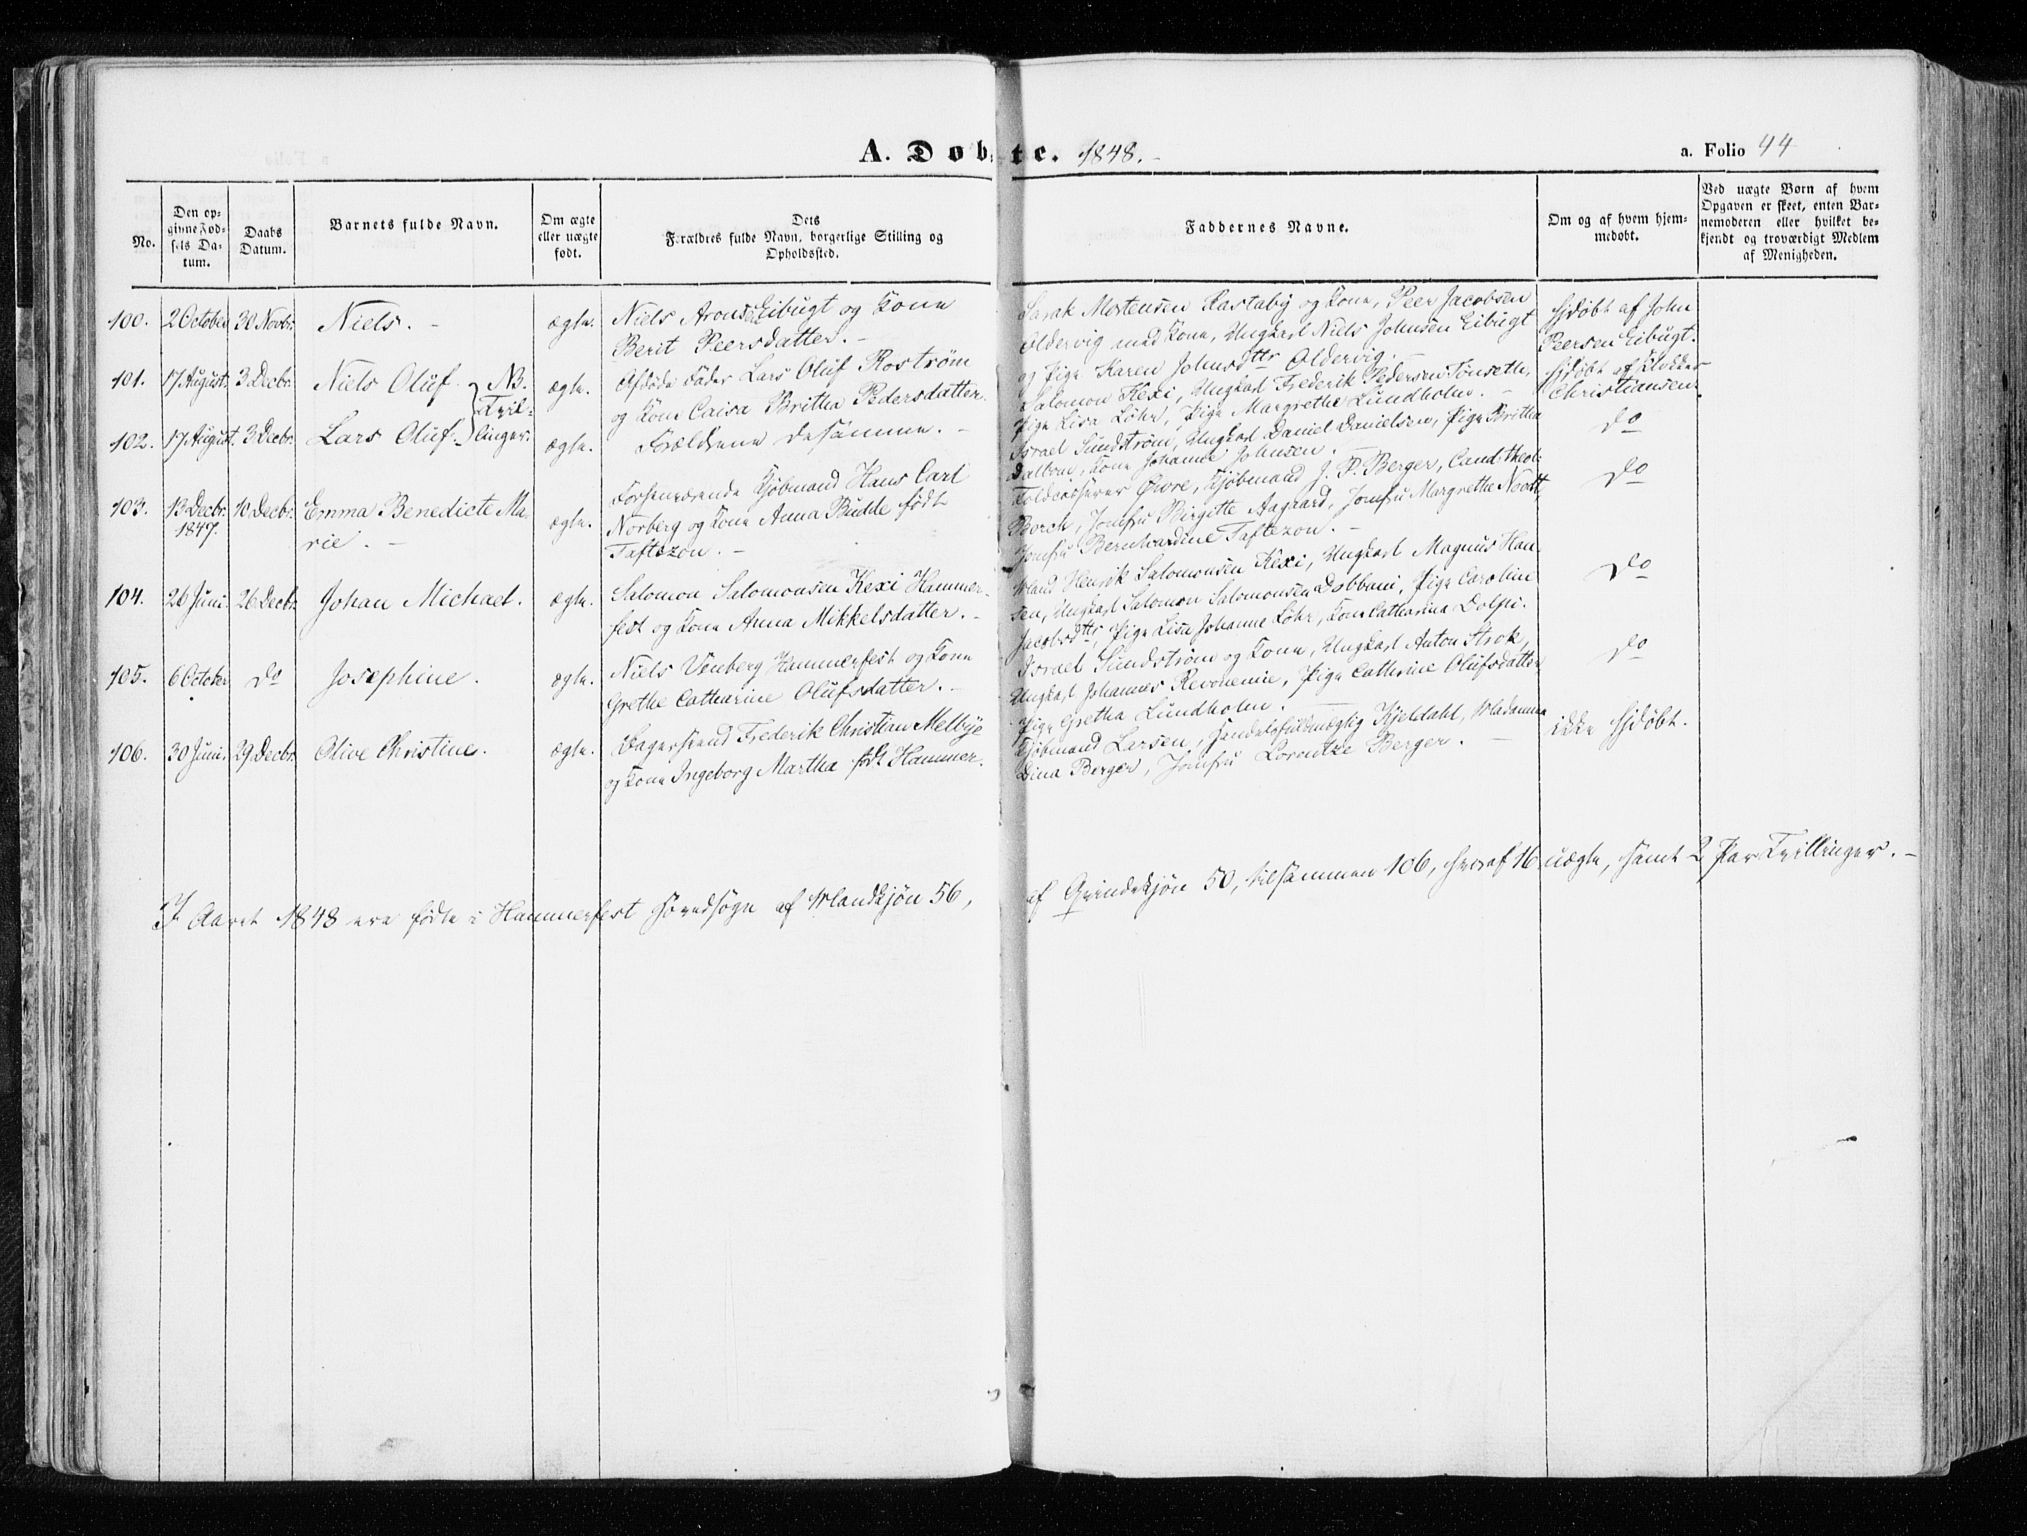 A. Døbte. 1848.-
a. Folio 44
No.
Den opgivne Fødsels Datum.
Daabs Datum.
Barnets fulde Navn.
Om ægte eller uægte født.
Dets Forældres fulde Navn, borgerlige Stilling og Opholdssted.
Faddernes Navne.
Om og af hvem hjemmedøbt.
Ved uægte Børn af hvem Opgaven er skeet, enten Barnemoderen eller hvilket bekjendt og troværdigt Medlem af Menigheden.
100. 2 October 30 Novbr. Niels. - ægte. Niels Arons Eibugt og Kone
Berit Peersdatter. -
Sarak Mortensen Kastaby og Kone, Peer Jacobsen
Oldervig med Kone, Ungkarl Niels Johnsen Eibugt
og Pige Karen Johnsdtr Oldervig. -
Hjdøbt af John
Peersen Eibugt.
101. 17 August. 3 Decbr. Niels Oluf. NB. Tvil- ægte. Afdøde Fader Lars Oluf Roström
og Kone Caisa Britha Pedersdatter.
Salomon Kexi, Ungkarl Frederik Pedersen Tønseth,
Pige Lisa Löhr, Pige Margrethe Lundholm. -
Hjdøbt af
Christiansen.
102. 17 August. 3 Decbr. Lars Oluf. linger. ægte. Forældrene desamme. -
Israel Sundström, Ungkarl Daniel Danielsen, Pige Britha
Dalbom, Kone Johanne Johnsen. -
do
103. 13 Decbr. 1847. 10 Decbr. Emma Benedicte Ma-
rie. - ægte. Forhenværende Kjøbmand Hans Carl
Norberg og Kone Anna Budde født
Taftezon. -
Toldcasserer Øwre, Kjøbmand J. P. Berger, Cand. theol.
Borch, Jomfru Birgitte Aagaard, Jomfru Margrethe Noodt,
Jomfru Bernhardine Taftezon. -
do
104. 26 Juni. 26 Decbr. Johan Michael. ægte. Salomon Salomonsen Kexi Hammer-
fest og Kone Anna Mikkelsdatter. -
Mand Henrik Salomonsen Kexi, Ungkarl Magnus Han-
sen, Ungkarl Salomon Salomonsen Dobbani, Pige Caroline
Jacobsdtr, Pige Lisa Johanne Löhr, Kone Catharina Dolpi.
do
105. 6 October do Josephine. ægte. Niels Venberg Hammerfest og Kone
Grethe Catharine Olufsdatter. -
Israel Sundström og Kone, Ungkarl Anton Strok,
Ungkarl Johannes Revonemie, Pige Catherine Olufsdatter
Pige Gretha Lundholm. -
do
106. 30 Juni. 29 Decbr. Olive Christine. ægte. Bagersvend Frederik Christian Melbye
og Kone Ingeborg Martha født Hammer.
Kjøbmand Larsen, Handelsfuldmægtig Kjeldahl, Madamme
Dina Berger, Jomfru Lorentze Berger. -
ikke hjdøbt.
I Aaret 1848 ere fødte i Hammerfest Hovedsogn af Mandkjøn 56, af Qvindekjøn 50, tilsammen 106, heraf 16 uægte, samt 2 Par Tvillinger. -